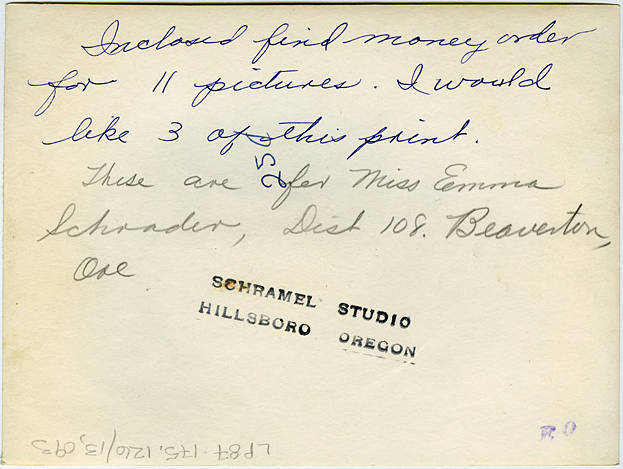 Inclosed find money order
for 11 pictures. I would
like 3 of this print.
25¢
These are for Miss Emma
Schrader, Dist 108. Beaverton,
Ore
SCHRAMEL STUDIO
HILLSBORO OREGON
LP87-175.126/13,093